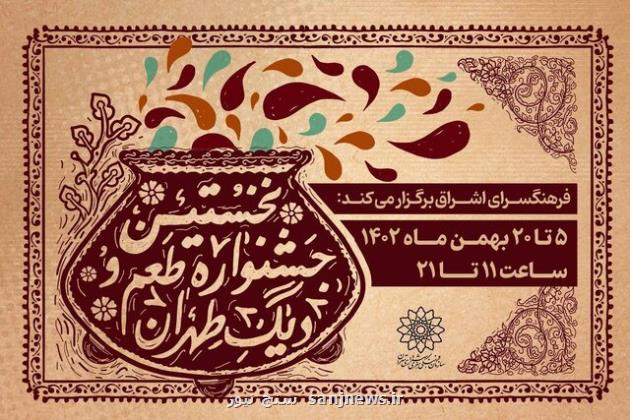 نخستین
جشنواره طعم و
دیگ طهران
فرهنگسرای اشراق برگزار می‌کند:
۵ تا ۲۰ بهمن ماه ۱۴۰۲
ساعت ۱۱ تا ۲۱
سنج نیوز sanjnews.ir